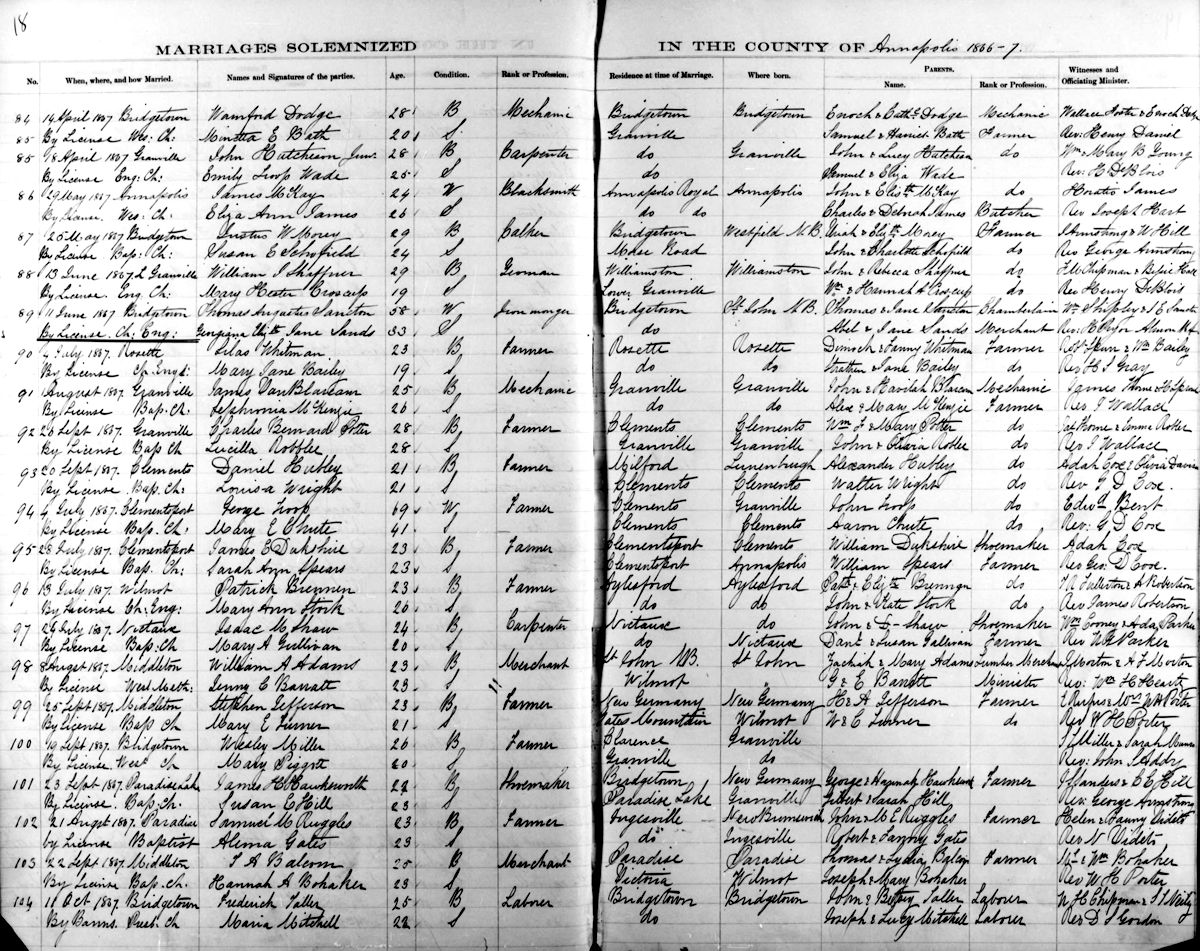 18
MARRIAGES SOLEMNIZED IN THE COUNTY OF Annapolis 1866-7.
No. When, where, and how Married. Names and Signatures of the parties. Age. Condition. Rank or Profession. Residence at time of Marriage. Where born. PARENTS. Name. Rank or Profession. Witnesses and Officiating Minister.
84 14 April 1867 Bridgetown Wamford Dodge 28 B Mechanic Bridgetown Bridgetown Enoch & Cath: Dodge Mechanic Wallace Foster & Enoch Dodge
By License Wes: Ch: E Bath 20 S Granville Samuel & Harriet Bath Farmer Rev: Henry Daniel
85 18 April 1867 Granville John Hutcheson Junr. 28 B Carpenter do Granville John & Lucy Hutcheson do Wm & Mary B Young
By License Eng: Ch: Emily Troop Wade 25 S do Samuel & Eliza Wade Rev: H DeBlois
86 29 May 1867 Annapolis James McKay 24 W Blacksmith Annapolis Royal Annapolis John & Elisth McKay do Horatio James
By License. Wes: Ch: Eliza Ann James 26 S do do Charles & Deborah James Butcher Rev Joseph Hart
87 25 May 1867 Bridgetown Justus W Morey 29 B Calker Bridgetown Westfield N.B. & Elizth Morey Farmer Armstrong & W Hill
By License Bap: Ch: Susan E Schofield 24 S Morse Road John & Charlotte Schofield do Rev George Armstrong
88 13 June 1867 L Granville William I Shaffner 29 B Yeoman Williamston Williamston John & Rebecca Shaffner do F M Chipman &
By License. Eng. Ch: Mary Hester Croscup 19 S Lower Granville Wm & Hannah A Croscup do Rev Henry DeBlois
89 11 June 1867 Bridgetown Thomas Augustus 58 W Iron monger Bridgetown St. John N.B. Thomas & Jane Chamberlain Wm Shipley &
By License. Ch: Eng: Georgiana Elizth Jane Sands 33 S do Abel & Jane Sands Merchant Rev:
90 4 July 1867. Rosette Silas Whitman 23 B Farmer Rosette Rosette Dimock & Fanny Whitman Farmer & Wm Bailey
By License Ch Engd: Mary Jane Bailey 19 S do do & Jane Bailey do Rev H S Gray
91 August 1867. Granville James VanBlarcom 25 B Mechanic Granville Granville John & Blarcom Mechanic James Thorne &
By License Bap. Ch: Sephronia McKenzie 26 S do do Alex & Mary McKenzie Farmer Rev I Wallace
92 26 Sept 1867. Granville Charles Bernard Potter 28 B Farmer Clements Clements Wm F & Mary Potter do Thorne &
By License Bap Ch Lucilla Robblee 28 S Granville Granville John & Roblee do Rev I Wallace
93 20 Sept 1867. Clements Daniel Hubley 21 B Farmer Milford Lunenburgh Alexander Hubley do Adah Cox &
By License Bap. Ch: Louisa Wright 21 S Clements Clements Walter Wright do Rev G D Cox.
94 4 July 1867. Clementsport George Troop 69 W Farmer Clements Granville John Troop do Edwd Bent
By License Bap. Ch: Mary E Chute 41 S Clements Clements Aaron Chute do Rev: G D Cox
95 28 July 1867. Clementsport James E Dukshire 23 B Farmer Clementsport Clements William Dukshire Shoemaker Adah Cox
By License Bap. Ch: Sarah Ann Spears 23 S Clementsport Annapolis William Spears Farmer Rev Geo: D Cox.
96 13 July 1867. Wilmot Patrick Brennen 23 B Farmer Aylesford Aylesford Patk & Elizth Brennan do Fullerton & A Robertson
By License Ch: Eng: Mary Ann Stork 26 S do do John & Kate Stork do Rev James Robertson
97 24 July 1867. Nictaux Isaac M Shaw 24 B Carpenter Nictaux do John & Shaw Shoemaker Wm Cooney & Ada Parker
By License Bap. Ch Mary A Sullivan 20 S do Nictaux Danl & Susan Sullivan Farmer Rev W Parker
98 8 Augst 1867. Middleton William A Adams 23 B Merchant St John N.B. St John & Mary Adams Lumber Merchant J Morton & A F Morton
By License West Meth: Jenny E Barratt 23 S Wilmot G & E Barrett Minister Rev: Wm H Heartz
99 25 Sept 1867. Middleton Stephen Jefferson 23 B Farmer New Germany New Germany H & A Jefferson Farmer & Mrs W H Porter
By License Bap Ch Mary E Turner 21 S Gates Mountain Wilmot W & E Turner do Rev W H Porter
100 19 Sept 1867. Bridgetown Wesley Miller 26 B Farmer Clarence Granville Miller & Sarah
By License. West Ch Mary Piggott 20 S Granville do Rev: John S Addy
101 23 Sept 1867. Paradise Lake James H Hawksworth 22 B Shoemaker Bridgetown New Germany George & Hannah Hawksworth Farmer J Sanders & E E Hill
By License. Bap. Ch. Susan E Hill 23 S Paradise Lake Granville & Sarah Hill Rev: George Armstrong
102 21 Augst 1867. Paradise Samuel M Ruggles 23 B Farmer Ingesville New Brunswick John & M E Ruggles Farmer Helen & Fanny Viditts
by License Baptist Alema Gates 23 S do Ingesville Robert & Gates Rev N Videto
103 22 Sept 1867. Middleton S A Balcom 25 B Merchant Paradise Paradise Thomas & Lydia Balcom Farmer & Wm Bohaker
By License Bap. Ch. Hannah A Bohaker 23 S Victoria Wilmot Joseph & Mary Bohaker Rev W H Porter
104 11 Oct 1867. Bridgetown Frederick Saller 25 B Laborer Bridgetown Bridgetown John & Betsey Saller Laborer W H Chipman &
By Banns. Prest: Ch Maria Mitchell 22 S do Joseph & Lucy Mitchell Laborer Rev D S Gordon